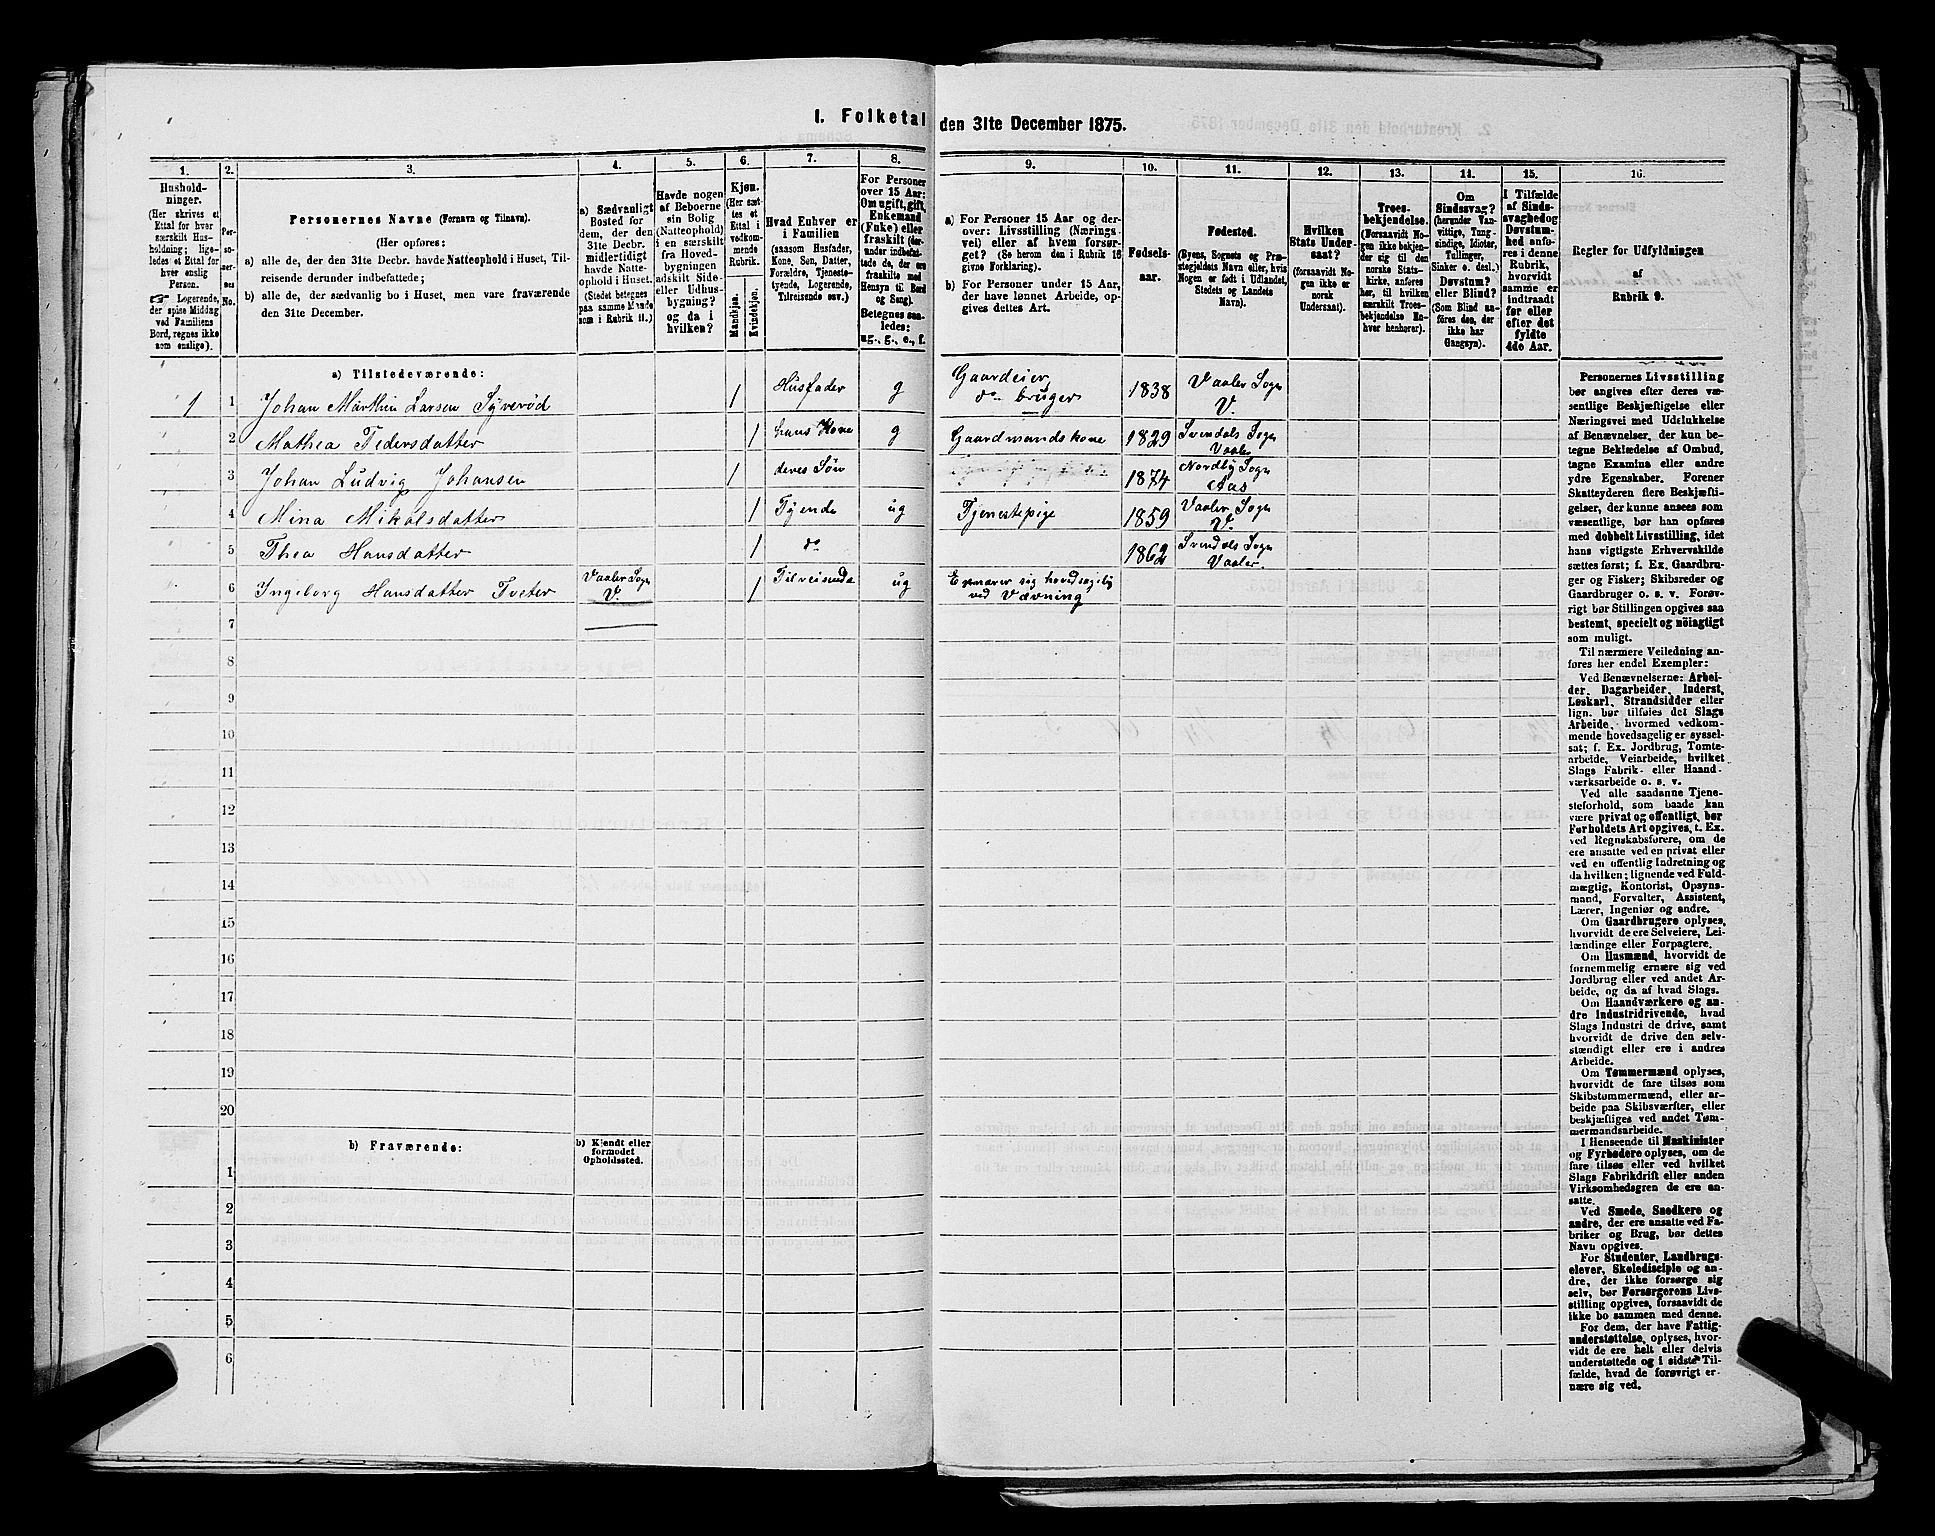 I. Folketal den 31te December 1875.
1.
2.
3.
4.
5.
6.
7.
8.
9.
10.
11.
12.
13.
14.
15.
16.
Hushold-
ninger.
(Her skrives et
Ettal for hver
særskilt Hus-
holdning; lige-
ledes et Ettal for
hver enslig
Person.
☞ Logerende,
der spise Middag
ved Familiens
Bord, regnes ikke
som enslige).
Per-
so-
ner-
nes
No.
Personernes Navne (Fornavn og Tilnavn).
(Her opføres:
a) alle de, der den 31te Decbr. havde Natteophold i Huset, Til-
reisende derunder indbefattede;
b) alle de, der sædvanlig bo i Huset, men vare fraværende
den 31te December.
a) Sædvanligt
Bosted for
dem, der den
31te Decbr.
midlertidigt
havde Natte-
ophold i Huset.
(Stedet betegnes
paa samme Maade
som i Rubrik 11.)
Havde nogen
af Beboerne
sin Bolig
(Natteophold)
i en særskilt
fra Hoved-
bygningen
adskilt Side-
eller Udhus-
bygning?
og da i
hvilken?
Kjøn.
(Her sæt-
tes et
Ettal i
vedkom-
mende
Rubrik.
Mandkjøn.
Kvindekjøn.
Hvad Enhver er
i Familien
(saasom Husfader,
Kone, Søn, Datter,
Forældre, Tjeneste-
tyende, Logerende,
Tilreisende osv.)
For Personer
over 15 Aar:
Om ugift, gift,
Enkemand
(Fuke) eller
fraskilt (der-
under indbefat-
tede de, der ere
fraskilte med
Hensyn til Bord
og Seng).
Betegnes saa-
ledes:
ug., g., e., f.
a) For Personer 15 Aar og der-
over: Livsstilling (Nærings-
vei) eller af hvem forsør-
get? (Se herom den i Rubrik 16
givne Forklaring).
b) For Personer under 15 Aar,
der have lønnet Arbeide, op-
gives dettes Art.
Fødsels-
aar.
Fødested.
(Byens, Sognets og Præ-
stegjeldets Navn eller, hvis
Nogen er født i Udlandet,
Stedets og Landets
Navn).
Hvilken
Stats Under-
saat?
(forsaavidt No-
gen ikke er
norsk
Undersaat).
Troes-
bekjendelse.
(Forsaavidt No-
gen ikke bekjen-
der sig til den
norske Stats-
kirke, anføres
her, til hvilken
særskilt Troes-
bekjendelse En-
hver henhører).
Om
Sindssvag?
(herunder Van-
vittige, Tung-
sindige, Idioter,
Tullinger,
Sinker o. desl.)
Døvstum?
eller Blind?
(Som Blind an-
føres den, der
ikke har
Gangsyn).
I Tilfælde
af Sinds-
svaghed og
Døvstum-
hed anfø-
res i denne
Rubrik,
hvorvidt
samme er
indtraadt
før eller
efter det
fyldte
4de Aar.
Regler for Udfyldningen
af
Rubrik 9.
a) Tilstedeværende:
1 1 Johan Marthin Larsen Syverød 1 Husfader g Gaardeier, do bruger 1838 Vaaler Sogn V.
2 Mathea Pedersdatter 1 hans Kone g Gaardmandskone 1829 Svendals Sogn Vaaler
3 Johan Ludvig Johansen 1 deres Søn 1874 Nordby Sogn Aas
4 Mina Mikalsdatter 1 Tyende ug Tjenestepige 1859 Vaaler Sogn V.
5 Thea Hansdatter 1 do 1862 Svendals Sogn Vaaler.
6 Ingeborg Hansdatter Tveter Vaaler Sogn V. 1 Tilreisende ug Ernærer sig hovedsagelig ved Vævning
7
8
9
10
11
12
13
14
15
16
17
18
19
20
b) Fraværende:
b) Kjendt eller
formodet
Opholdssted.
1
2
3
4
5
6
Personernes Livsstilling
bør angives efter deres væ-
sentlige Beskjæftigelse eller
Næringsvei med Udelukkelse
af Benævnelser, der kun be-
tegne Beklædelse af Ombud,
tagne Examina eller andre
ydre Egenskaber. Forener
Skatteyderen flere Beskjæfti-
gelser, der kunne ansees som
væsentlige, bør han opføres
med dobbelt Livsstilling, idet
hans vigtigste Erhvervskilde
sættes først; f. Ex. Gaardbru-
ger og Fisker; Skibsreder og
Gaardbruger o. s. v. Forøv-
rigt bør Stillingen opgives saa
bestemt, specielt og nöiagtigt
som muligt.
Til nærmere Veiledning an-
føres her endel Exempler:
Ved Benævnelserne: Arbei-
der, Dagarbeider, Inderst,
Løskarl, Strandsidder eller
lign. bør tilføies det Slags
Arbeide, hvormed vedkom-
mende hovedsagelig er syssel-
sat; f. Ex. Jordbrug, Tomte-
arbeide, Veiarbeide, hvilket
Slags Fabrik- eller Haand-
værksarbeide o. s. v.
Ved alle saadanne Tjene-
steforhold, som baade kan
være privat og offentligt, bør
Forholdets Art opgives, t. Ex.
ved Regnskabsførere, om de
ere ansatte ved en privat eller
ved en offentlig Indretning og
da hvilken; lignende ved Fuld-
mægtig, Kontorist, Opsyns-
mand, Forvalter, Assistent,
Lærer, Ingeniør og andre.
Om Gaardbrugere oplyses,
hvorvidt de ere Selveiere, Lei-
lændinge eller Forpagtere.
Om Husmænd, hvorvidt de
fornemmelig ernære sig ved
Jordbrug eller ved andet Ar-
beide, og da af hvad Slags.
Om Haandværkere og an-
dre Industridrivende, hvad
Slags Industri de drive, samt
hvorvidt de drive den selv-
stændigt eller ere i andres
Arbeide.
Om Tømmermænd oplyses,
hvorvidt de fare tilsøs som
Skibstømmermænd, eller ar-
beide paa Skibsværfter, eller
beskjæftiges ved andet Tøm-
mermandsarbeide.
I Henseende til Maskinister
og Fyrbødere oplyses, om de
fare tilsøs eller ved hvilket
Slags Fabrikdrift eller anden
Virksomhedsgren de ere an-
satte.
Ved Smede, Snedkere og
andre, der ere ansatte ved Fa-
briker og Brug, bør dettes
Navn opgives.
For Studenter, Landbrugs-
elever, Skoledisciple og an-
dre, der ikke forsørge sig
selv, bør Forsørgerens Livs-
stilling opgives, forsaavidt de
ikke bo sammen med denne.
For dem, der have Fattig-
understøttelse, oplyses, hvor-
vidt de ere helt eller delvis
understøttede og i sidste Til-
fælde, hvad de forøvrigt er-
nære sig ved.